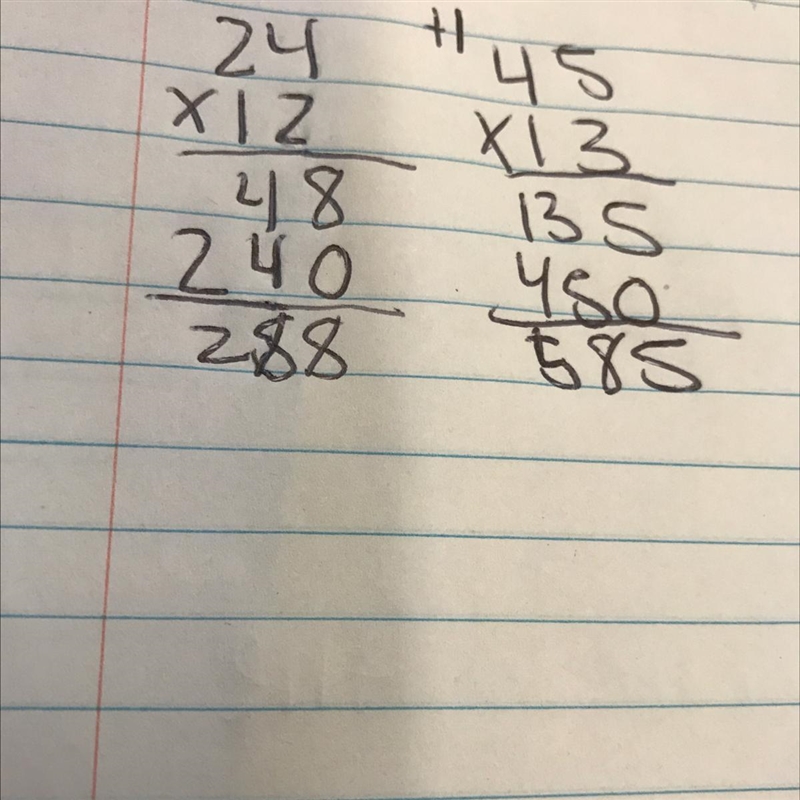 24
×12
48
240
288
+1
45
×13
135
450
585